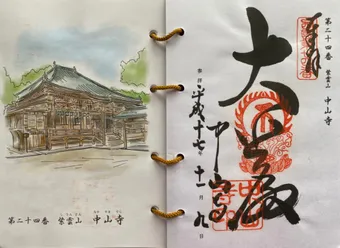 第二十四番 紫雲山 中山寺
第二十四番 紫雲山 中山寺
奉拝
大悲殿
中山寺
平成十七年十一月九日